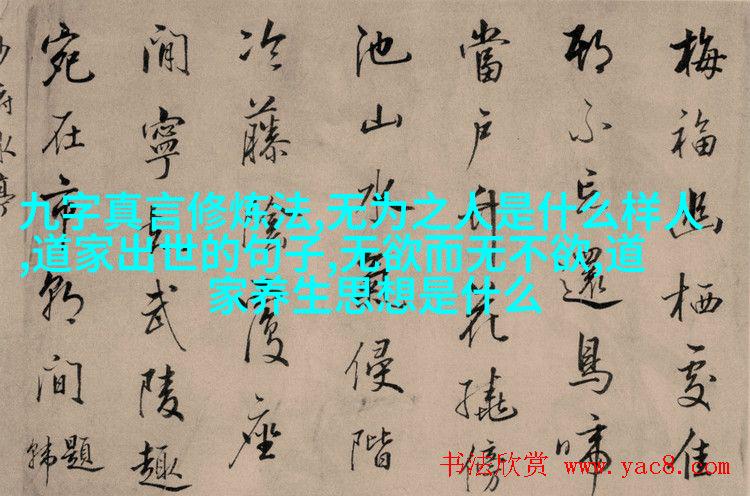 梅福幽栖處佳
期不忘還鳥啼
當戶竹花撓傍
池山水氣侵階
冷藤陰覆座
閒寧知武陵趣
宛在市朝間
題韩
少府水亭
九字真言修炼法,无为之人是什么样人
,道家出世的句子,无欲而无不欲,道
家养生思想是什么
书法欣赏 www.yac8.com